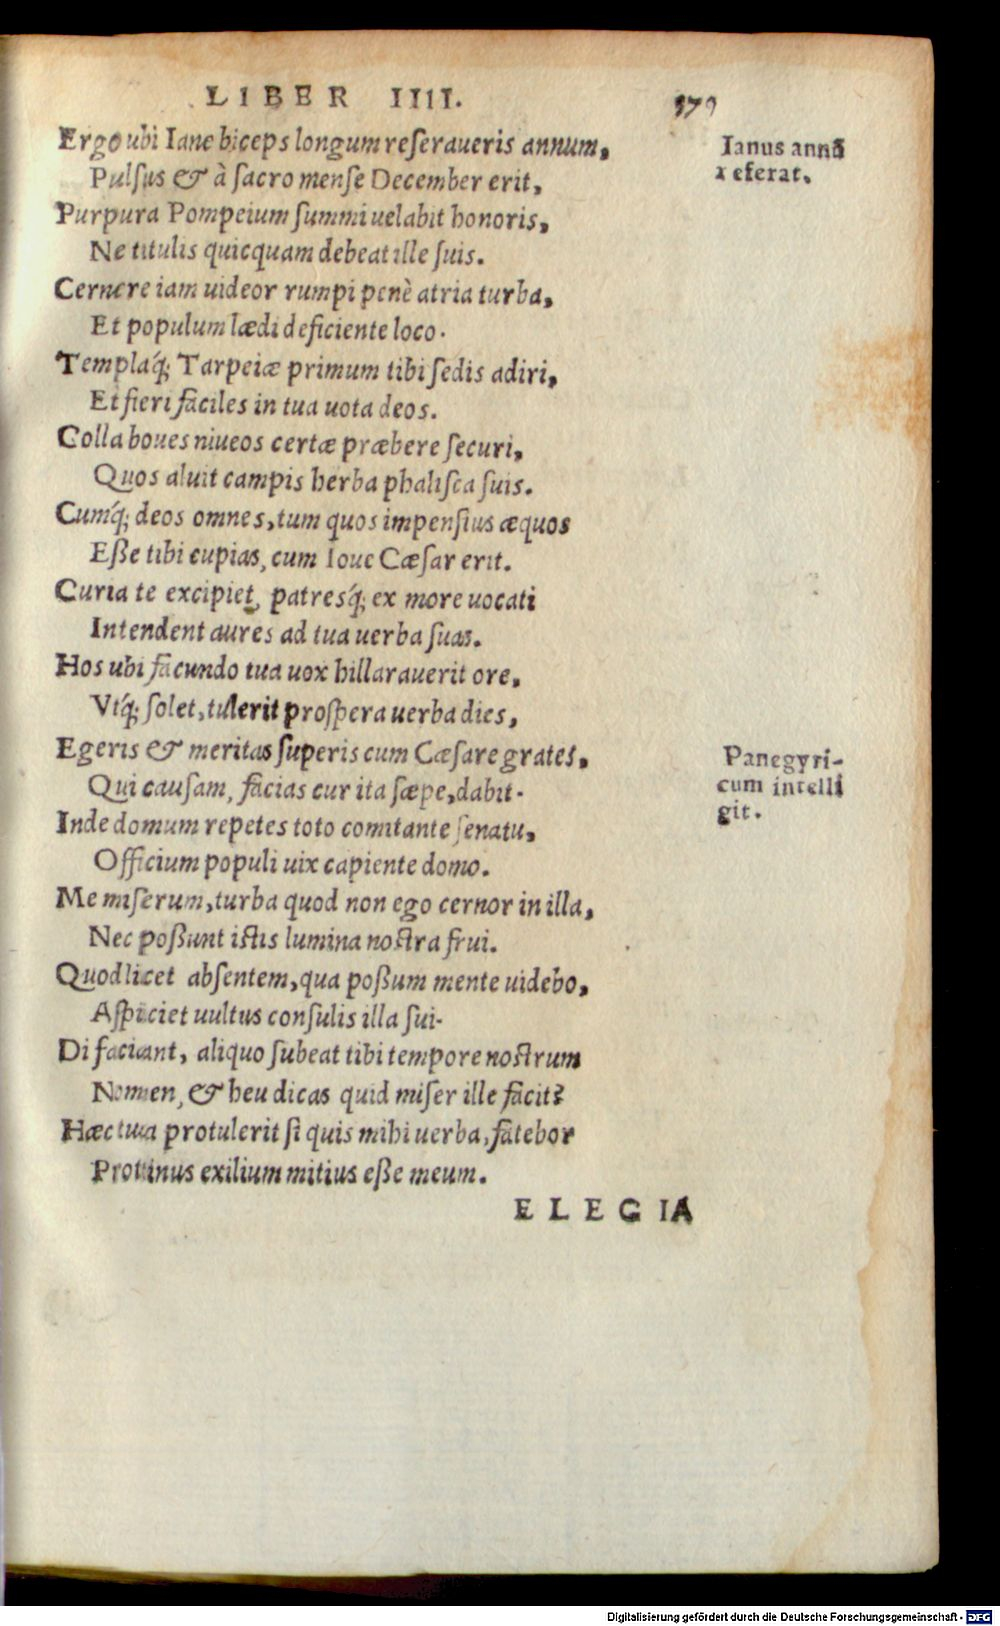 LIBER IIII. 179
Ergo ubi Iane biceps longum reseraueris annum,
Pulsus & à sacro mense December erit,
Purpura Pompeium summi uelabit honoris,
Ne titulis quicquam debeat ille suis.
Cernere iam uideor rumpi penè atria turba,
Et populum lædi deficiente loco.
Templaq́; Tarpeiæ primum tibi sedis adiri,
Et fieri faciles in tua uota deos.
Colla boues niueos certæ præbere securi,
Quos aluit campis herba phalisca suis.
Cumq́; deos omnes, tum quos impensius æquos
Eße tibi cupias, cum Ioue Cæsar erit.
Curia te excipiet, patresq́; ex more uocati
Intendent aures ad tua uerba suas.
Hos ubi facundo tua uox hillarauerit ore,
Vtq́; solet, tulerit prospera uerba dies,
Egeris & meritas superis cum Cæsare grates,
Qui causam, facias cur ita sæpe, dabit.
Inde domum repetes toto comitante senatu,
Officium populi uix capiente domo.
Me miserum, turba quod non ego cernor in illa,
Nec poßunt istis lumina nostra frui.
Quodlicet absentem, qua poßum mente uidebo,
Aspiciet uultus consulis illa sui.
Di faciant, aliquo subeat tibi tempore nostrum
Nomen, & heu dicas quid miser ille facit?
Hæc tua protulerit si quis mihi uerba, fatebor
Protinus exilium mitius eße meum.
ELEGIA
Ianus annū
referat.
Panegyri-
cum intelli
git.
Digitalisierung gefördert durch die Deutsche Forschungsgemeinschaft - DFG